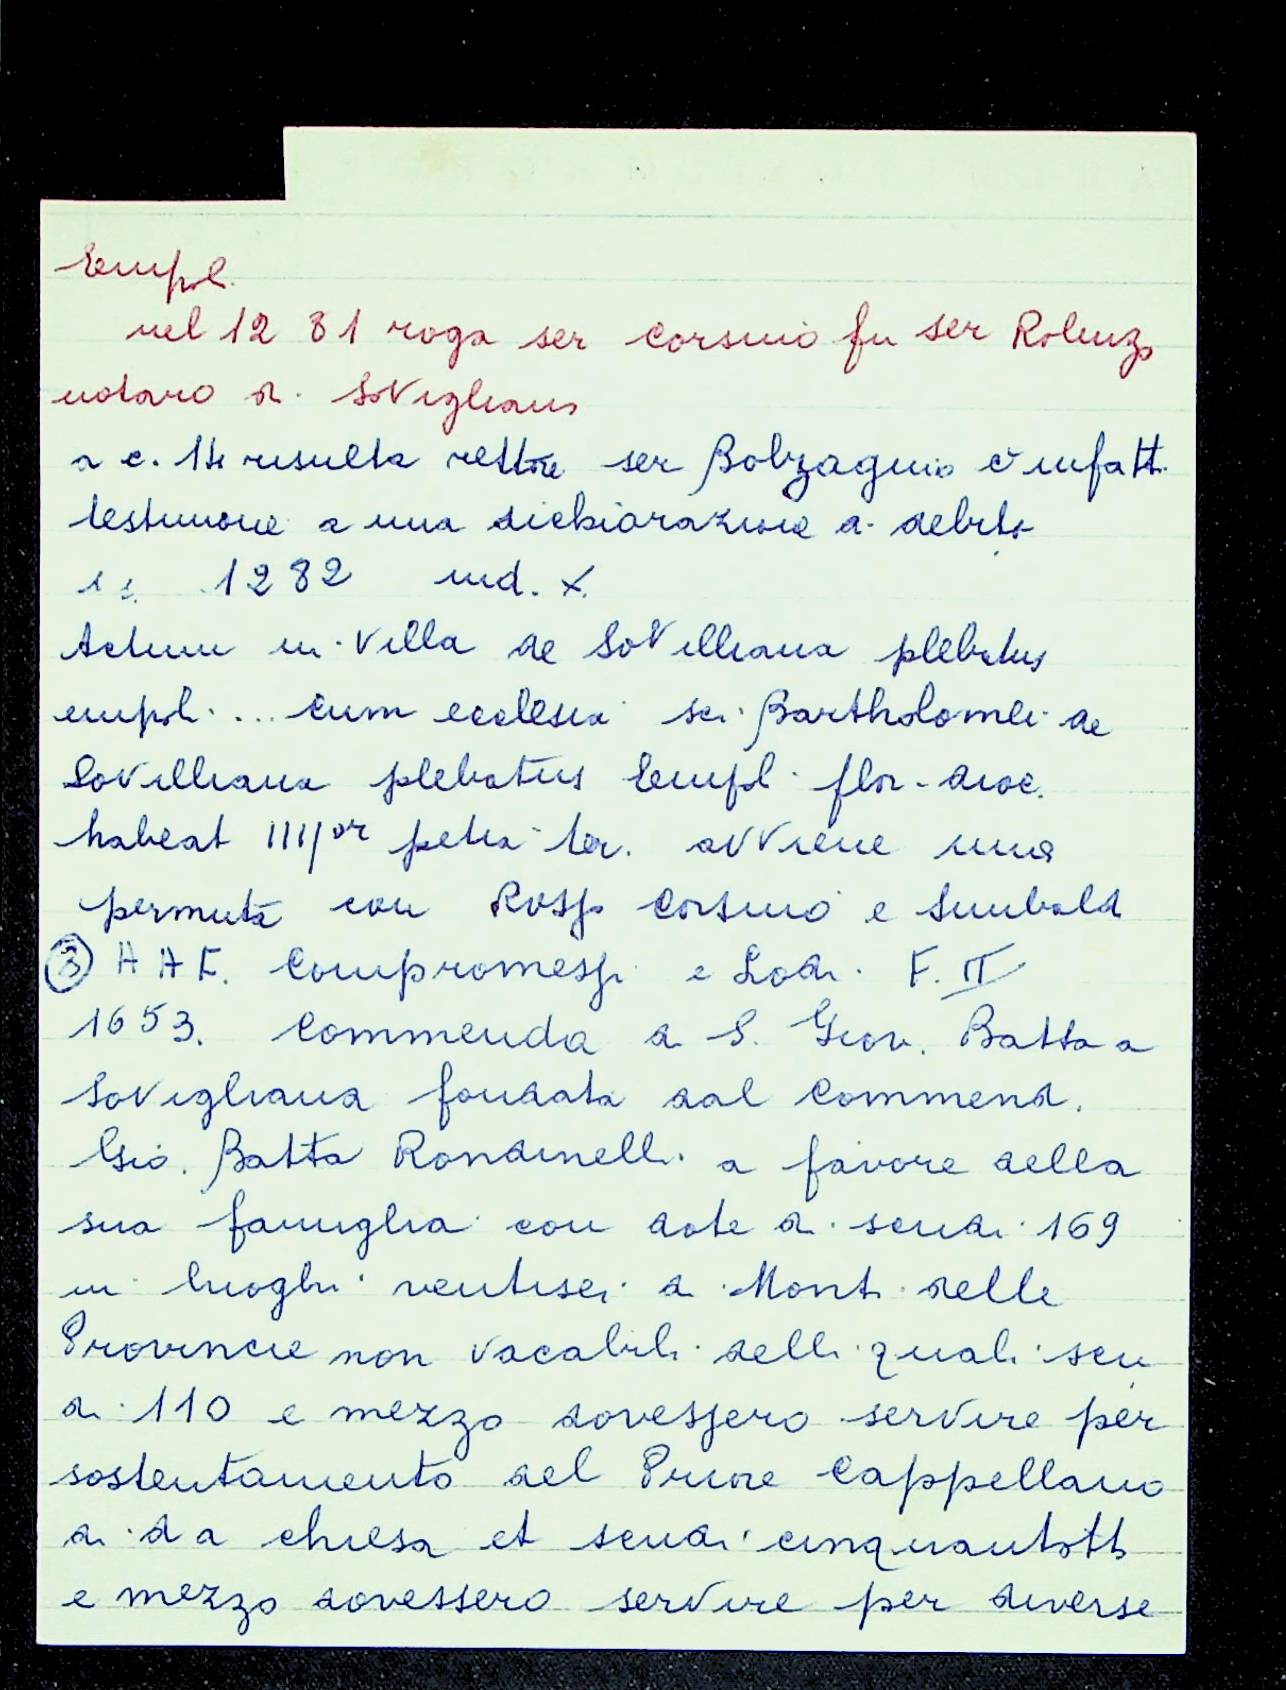 Empol.
nel 1281 roga ser Corsino fu ser
notaro di Sovigliana
a c. 14 risulta rettore ser Bolzagnio è infatti
testimone a una dichiarazione di debito
1282 ind. X.
Actum in villa de Sovilliana plebatus
empoli ... cum ecclesia sci. Bartholomei de
Sovilliana plebatus Empol. flor. dioc.
habeat IIIIor petia ter. avviene una
permuta con Corsino e
③ A A F. Compromessi e Lodi. F. II
1653. Commenda di S. Giov. Batta a
Sovigliana fondata dal Commend.
Gio. Batta Rondinelli a favore della
sua famiglia con dote di scudi 169
in luoghi ventisei di Monti delle
Provincie non vacabili delli quali scu
di 110 e mezzo dovessero servire per
sostentamento del Priore Cappellano
di da chiesa et scudi cinquantotto
e mezzo dovessero servire per diverse